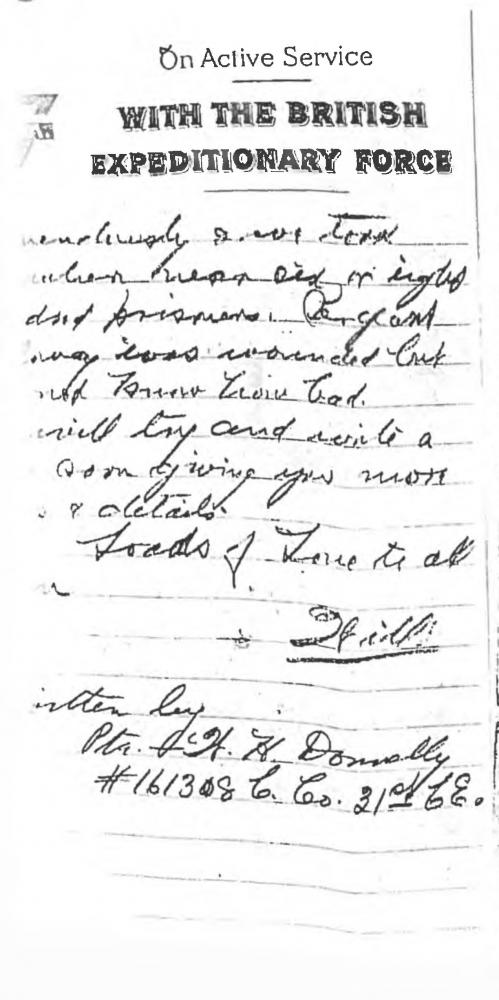 On Active Service
WITH THE BRITISH
EXPEDITIONARY FORCE
when near six or eight
prisoners.
was wounded but
not know how bad.
will try and write a
soon giving you more
& details.
Loads of Love to all
Will
itten by
Pte. H. H. Donnolly
#161308 C. Co. 31st